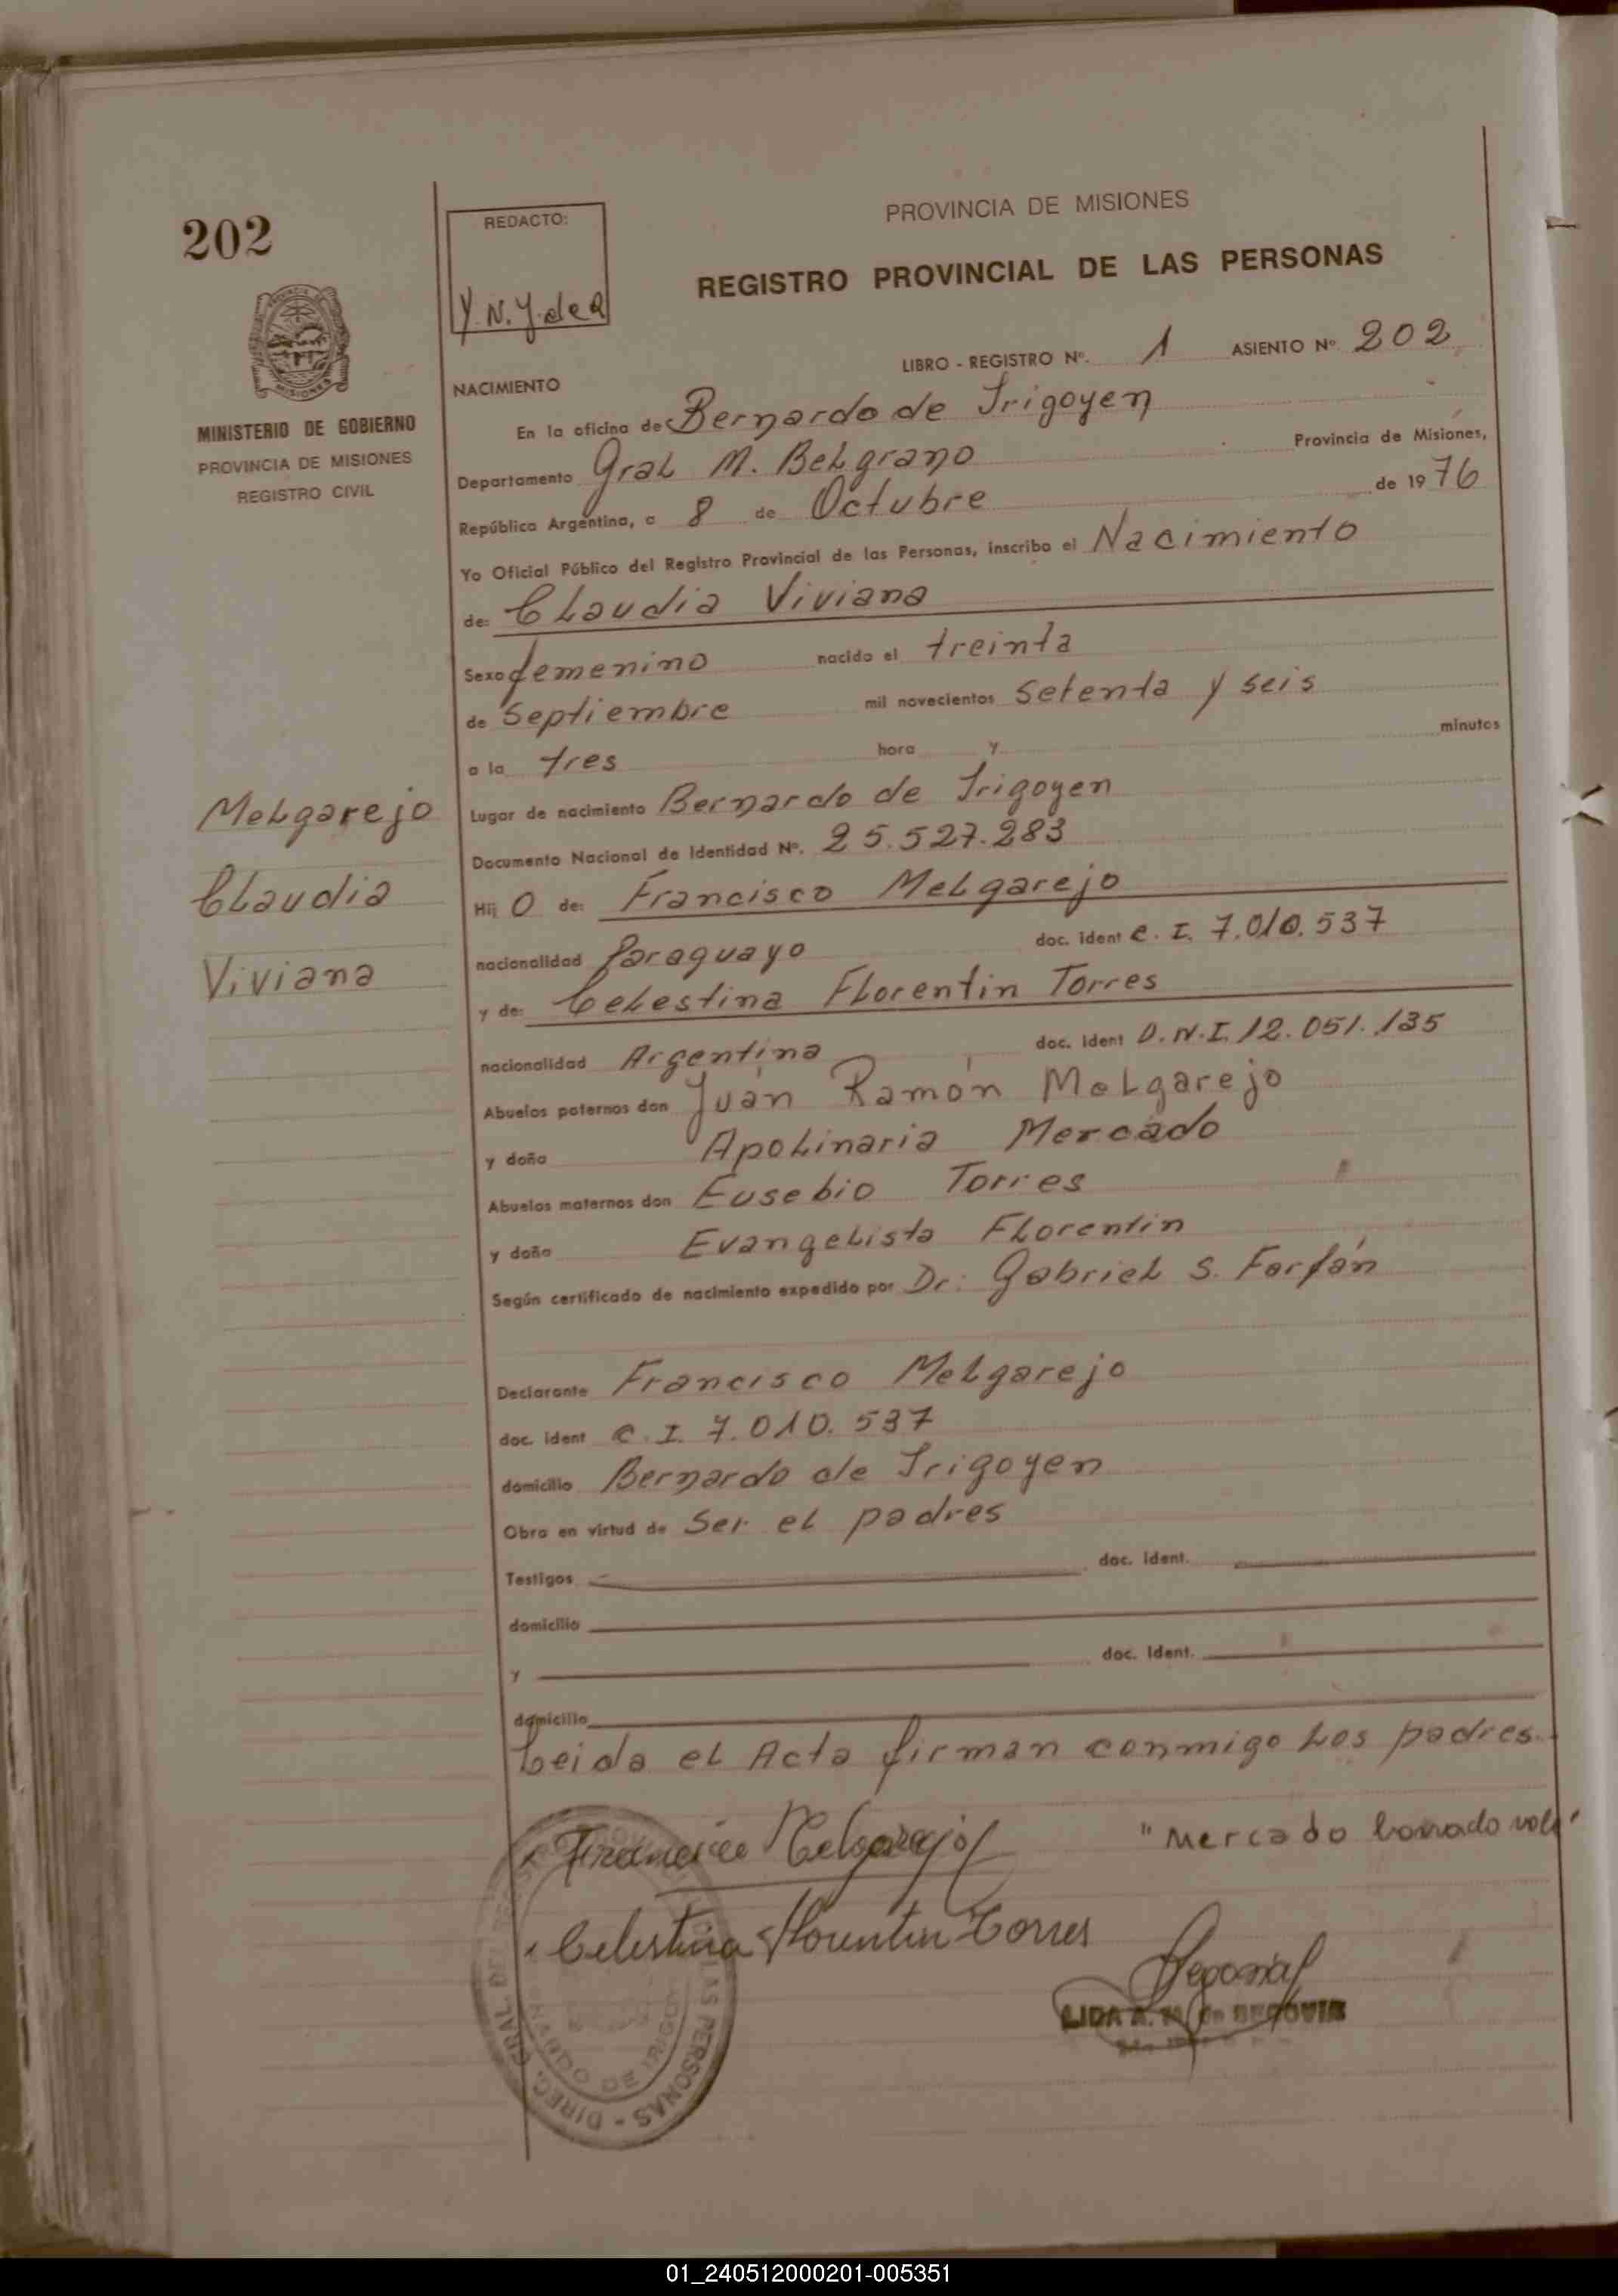 202
REDACTO:
Y. N. Y. de
PROVINCIA DE MISIONES
REGISTRO PROVINCIAL DE LAS PERSONAS
LIBRO - REGISTRO Nº. 1 ASIENTO Nº 202
PROVINCIA DE MISIONES
MINISTERIO DE GOBIERNO
PROVINCIA DE MISIONES
REGISTRO CIVIL
NACIMIENTO
En la oficina de Bernardo de Irigoyen
Departamento Gral M. Belgrano Provincia de Misiones,
República Argentina, a 8 de Octubre de 1976
Yo Oficial Público del Registro Provincial de las Personas, inscribo el Nacimiento
de: Claudia Viviana
Sexo femenino nacido el treinta
de Septiembre mil novecientos setenta y seis
a la tres hora y minutos
Lugar de nacimiento Bernardo de Irigoyen
Documento Nacional de Identidad Nº. 25.527.283
Melgarejo
Claudia
Viviana
Hij o de: Francisco Melgarejo
nacionalidad Paraguayo doc. ident C. I. 7.010.537
y de: Celestina Florentin Torres
nacionalidad Argentina doc. ident D.N.I. 12.051.135
Abuelos paternos don Juan Ramón Melgarejo
y doña Apolinaria Mercado
Abuelos maternos don Eusebio Torres
y doña Evangelista Florentin
Según certificado de nacimiento expedido por Dr: Gabriel S. Farfán
Declarante Francisco Melgarejo
doc. ident C. I. 7.010.537
domicilio Bernardo de Irigoyen
Obra en virtud de Ser el padres
Testigos doc. ident.
domicilio
y doc. ident.
domicilio
Leida el Acta firman conmigo los padres.
Francisco Melgarejo
"Mercado borrado vale"
Celestina Florentin Torres
LIDA A. M. de SEGOVIA
DIREC. GRAL. DEL LAS PERSONAS
BERNARDO DE IRIGOYEN
01_240512000201-005351